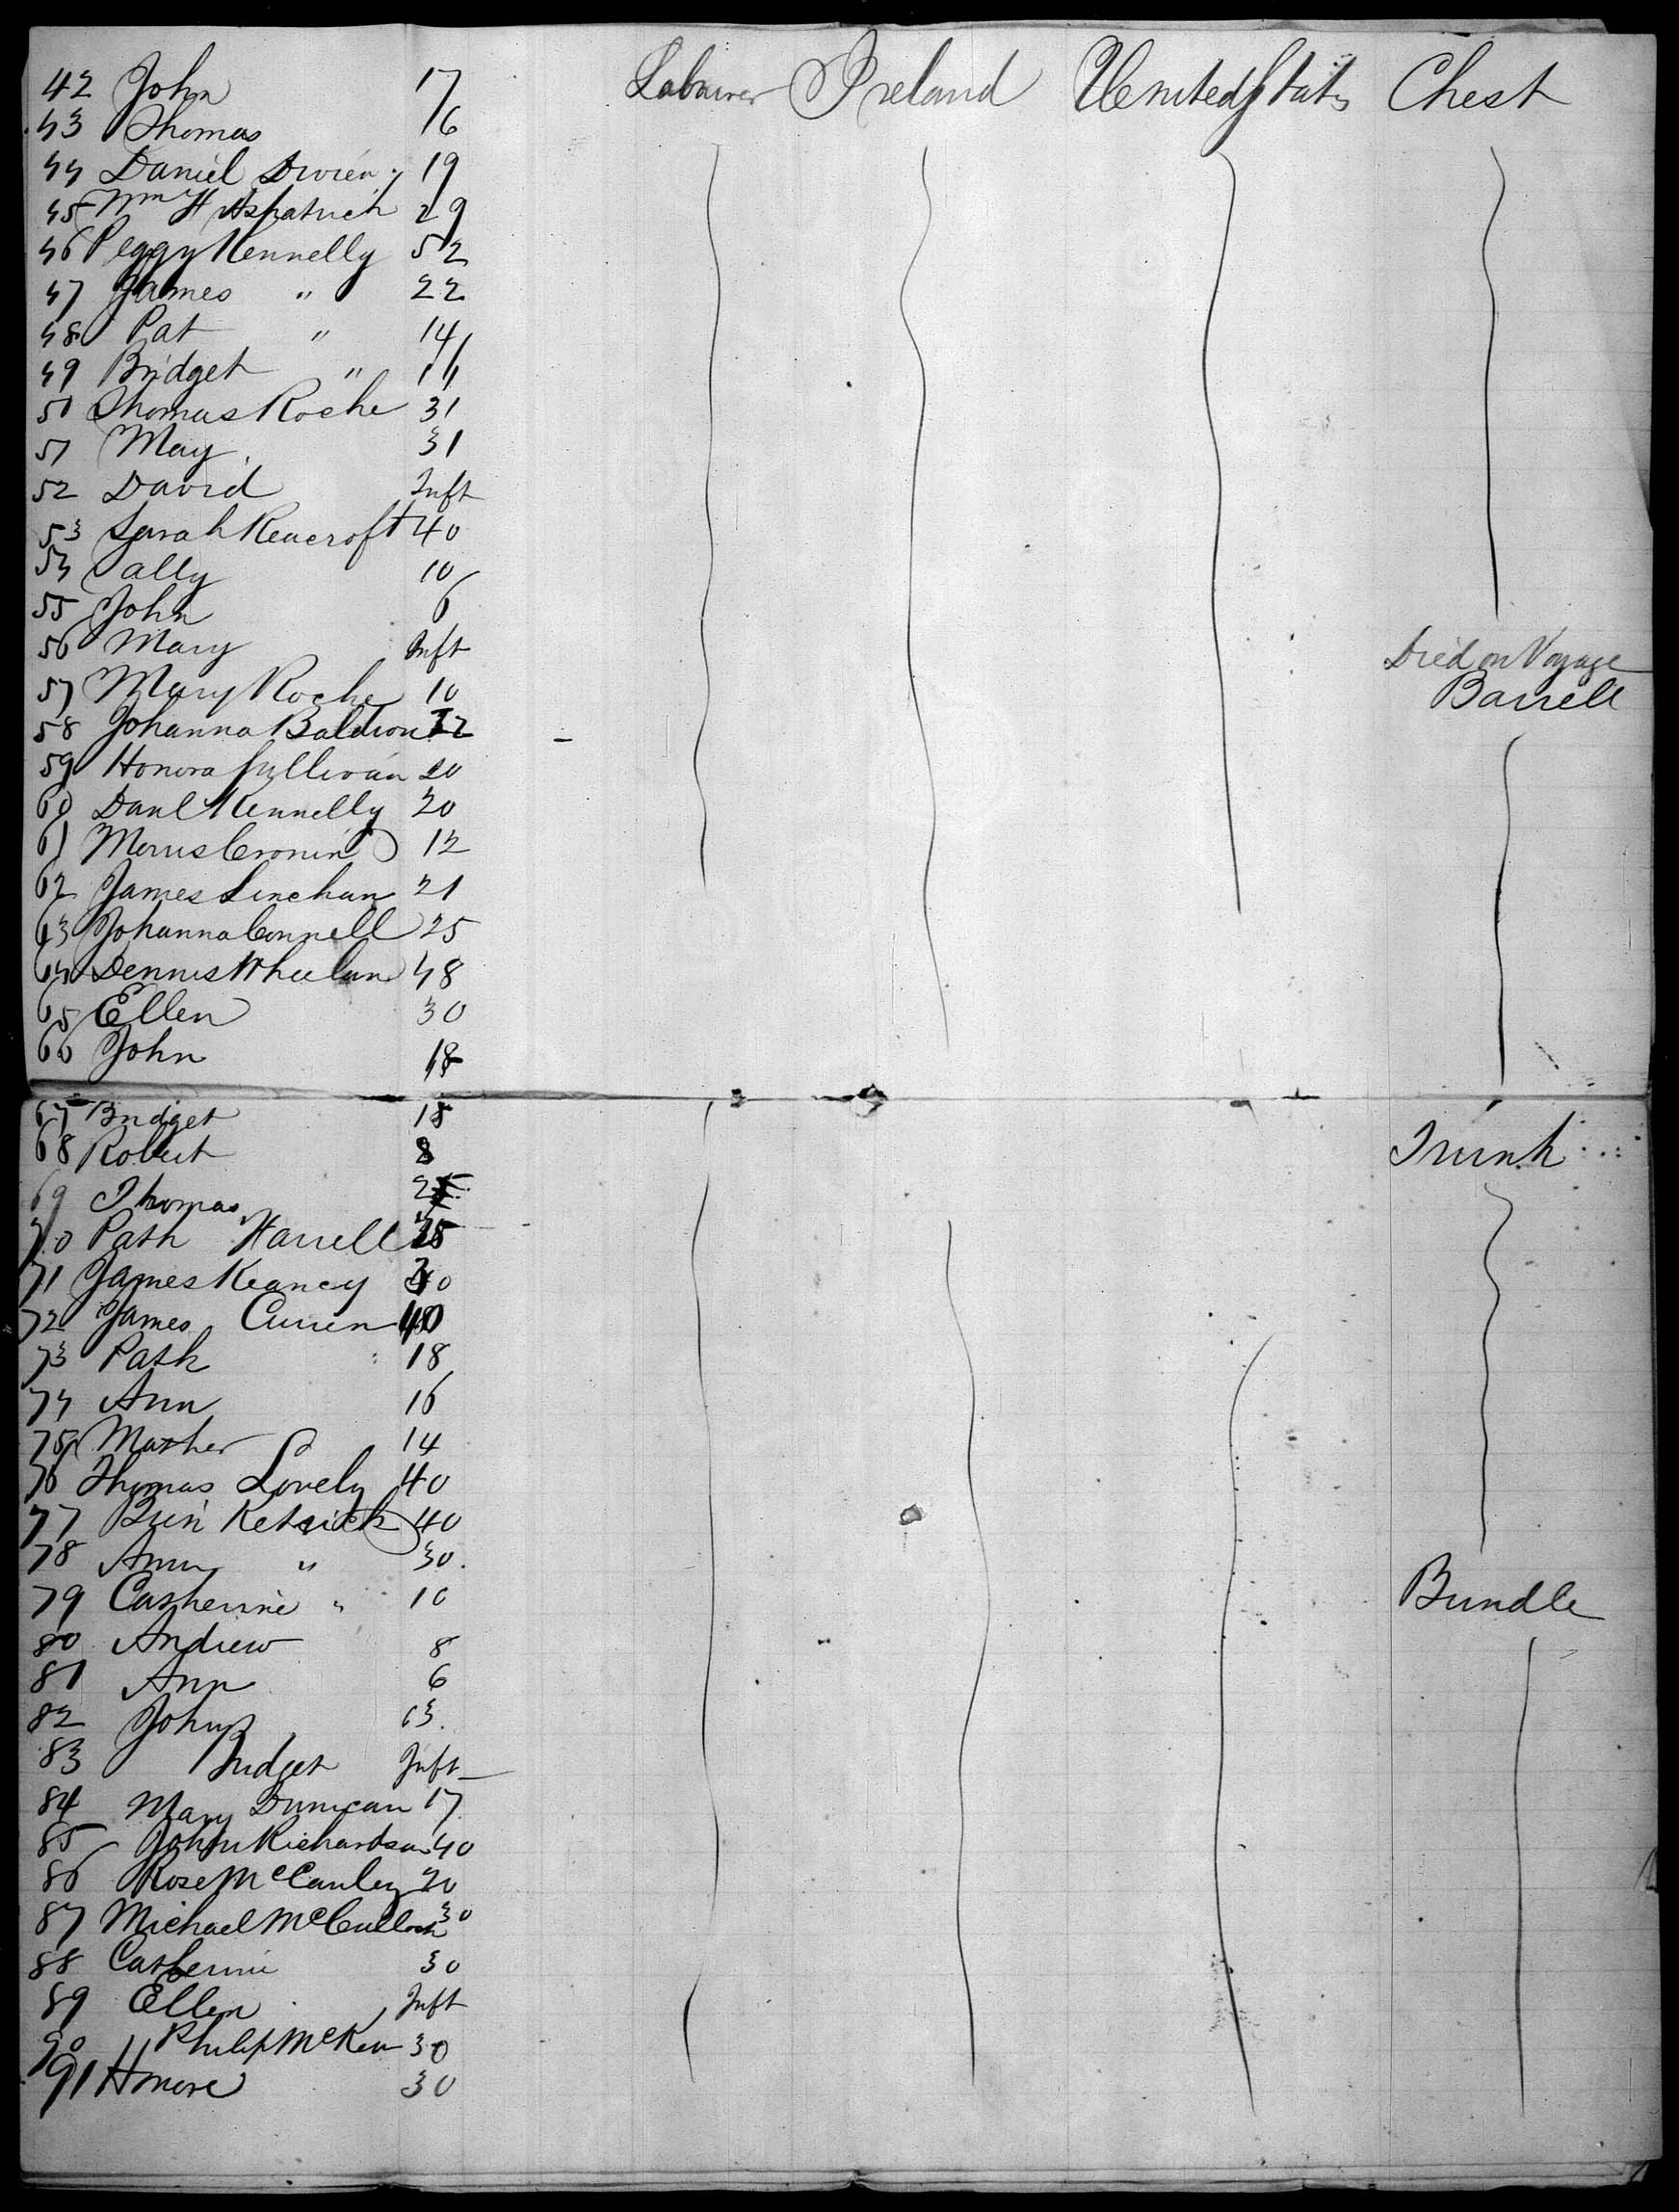 42 John 17 Labourer Ireland United Stats Chest
43 Thomas 16
44 Daniel 19
45 Wm Fitzpatrick 29
46 Peggy Kennelly 52
47 James " 22
48 Pat " 14
49 Bridget " 11
50 Thomas Roche 31
51 May 31
52 David Inft
53 Sarah Reacroft 40
54 Sally 10
55 John 6
56 Mary Inft Died on Voyage
57 Mary Roche 10 Barrell
58 Johanna Baldwin 22
59 Honora Sullivan 20
60 Danl Kennelly 20
61 Morris Cronin 12
62 James Linehan 21
63 Johanna Connell 25
64 Dennis Wheelan 48
65 Ellen 30
66 John 18
67 Bridget 18
68 Robert 8 Trunk
69 Thomas
70 Patk Harrell
71 James Keaney
72 James Curren 40
73 Patk 18
74 Ann 16
75 Mather 14
76 Thomas Lovely 40
77 40
78 Ann " 30
79 Catherine " 10 Bundle
80 Andrew 8
81 Ann 6
82 John
83 Bridget Inft
84 Mary Duncan 17
85 John Richardson 40
86 Rose McCauley 20
87 Michael McCulloch 30
88 Catherine 30
89 Ellen Inft
90 Philip McKen 30
91 30